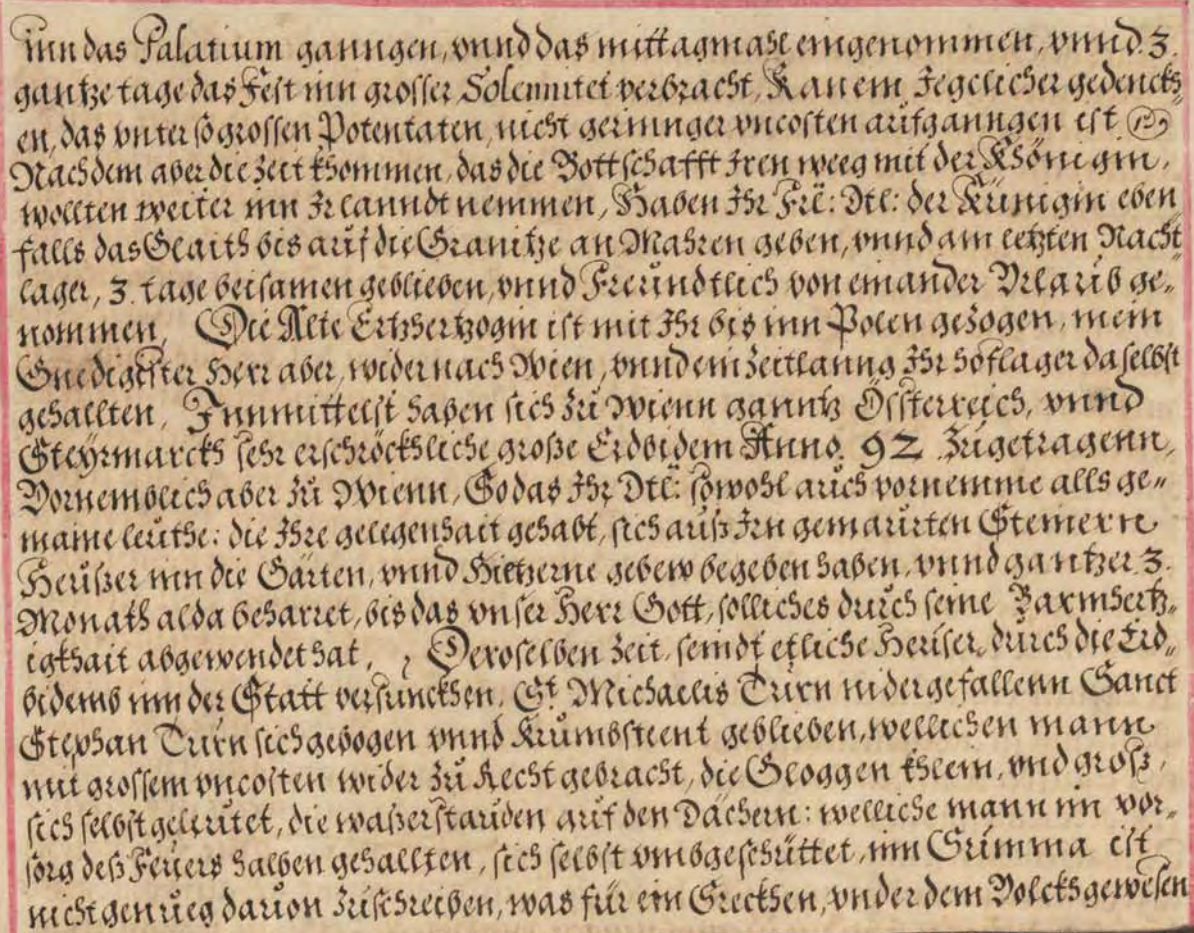 inn das Palatium ganngen, vnnd das mittagmasl eingenommen, vnnd 3.
gantze tage das Fest inn grosser Solennitet verbracht, Kan ein Jegelicher gedenckh,,
en, das vnter so grossen Potentaten, nicht geringer vncosten aufganngen ist
Nachdem aber die Zeit khommen, das die Bottschafft Iren weeg mit der Khönigin,
wollten weiter inn Ir lanndt nemmen, Haben Ihr Frl: Dtl: der Künigin eben
falls das Glaith bis auf die Granitze an Mahren geben, vnnd am letzten Nacht
lager, 3. tage beisamen geblieben, vnnd Freündtlich von einander Vrlaub ge,,
nommen, Die Alte Ertzhertzogin ist mit Ihr bis inn Polen gezogen, mein
Gnedigister Herr aber, wider nach Wien, vnnd ein Zeitlanng Ihr hoflager daselbst
gehallten, Innmittelst haben sich zu Wienn ganntz Össterreich, vnnd
Steyrmarckh sehr erschröckhliche große Erdbidem Anno. 92 Zugetragenn,
Vornemblich aber zu Wienn, So das Ihr Dtl: sowohl auch vornemme alls ge,,
maine leuthe: die Ihre gelegenhait gehabt, sich auß Irn gemaurten Steinern
Heüßer inn die Gärten, vnnd Hietzerne gebew begeben haben, vnnd gantzer 3.
Monath alda beharret, bis das vnser Herr Gott, solliches durch seine Barmhertz,,
igkhait abgewendet hat, Deroselben Zeit, seindt etliche Heüser, durch die Erd,,
bidems inn der Statt versunckhen, St Michaelis Turn nidergefallenn Sanct
Stephan Turn sich gebogen vnnd Krumbsteent geblieben, wellichen mann
mit grossem vncosten wider zu Recht gebracht, die Gloggen khlein, vnd groß,
sich selbst geleutet, die waßerstauden auf den Dächern: welliche mann im vor,,
sorg deß Feüers halben gehallten, sich selbst vmbgeschüttet, inn Summa ist
nicht genueg dauon zuschreiben, was für ein Greckhen, vnder dem Volckh gewesen